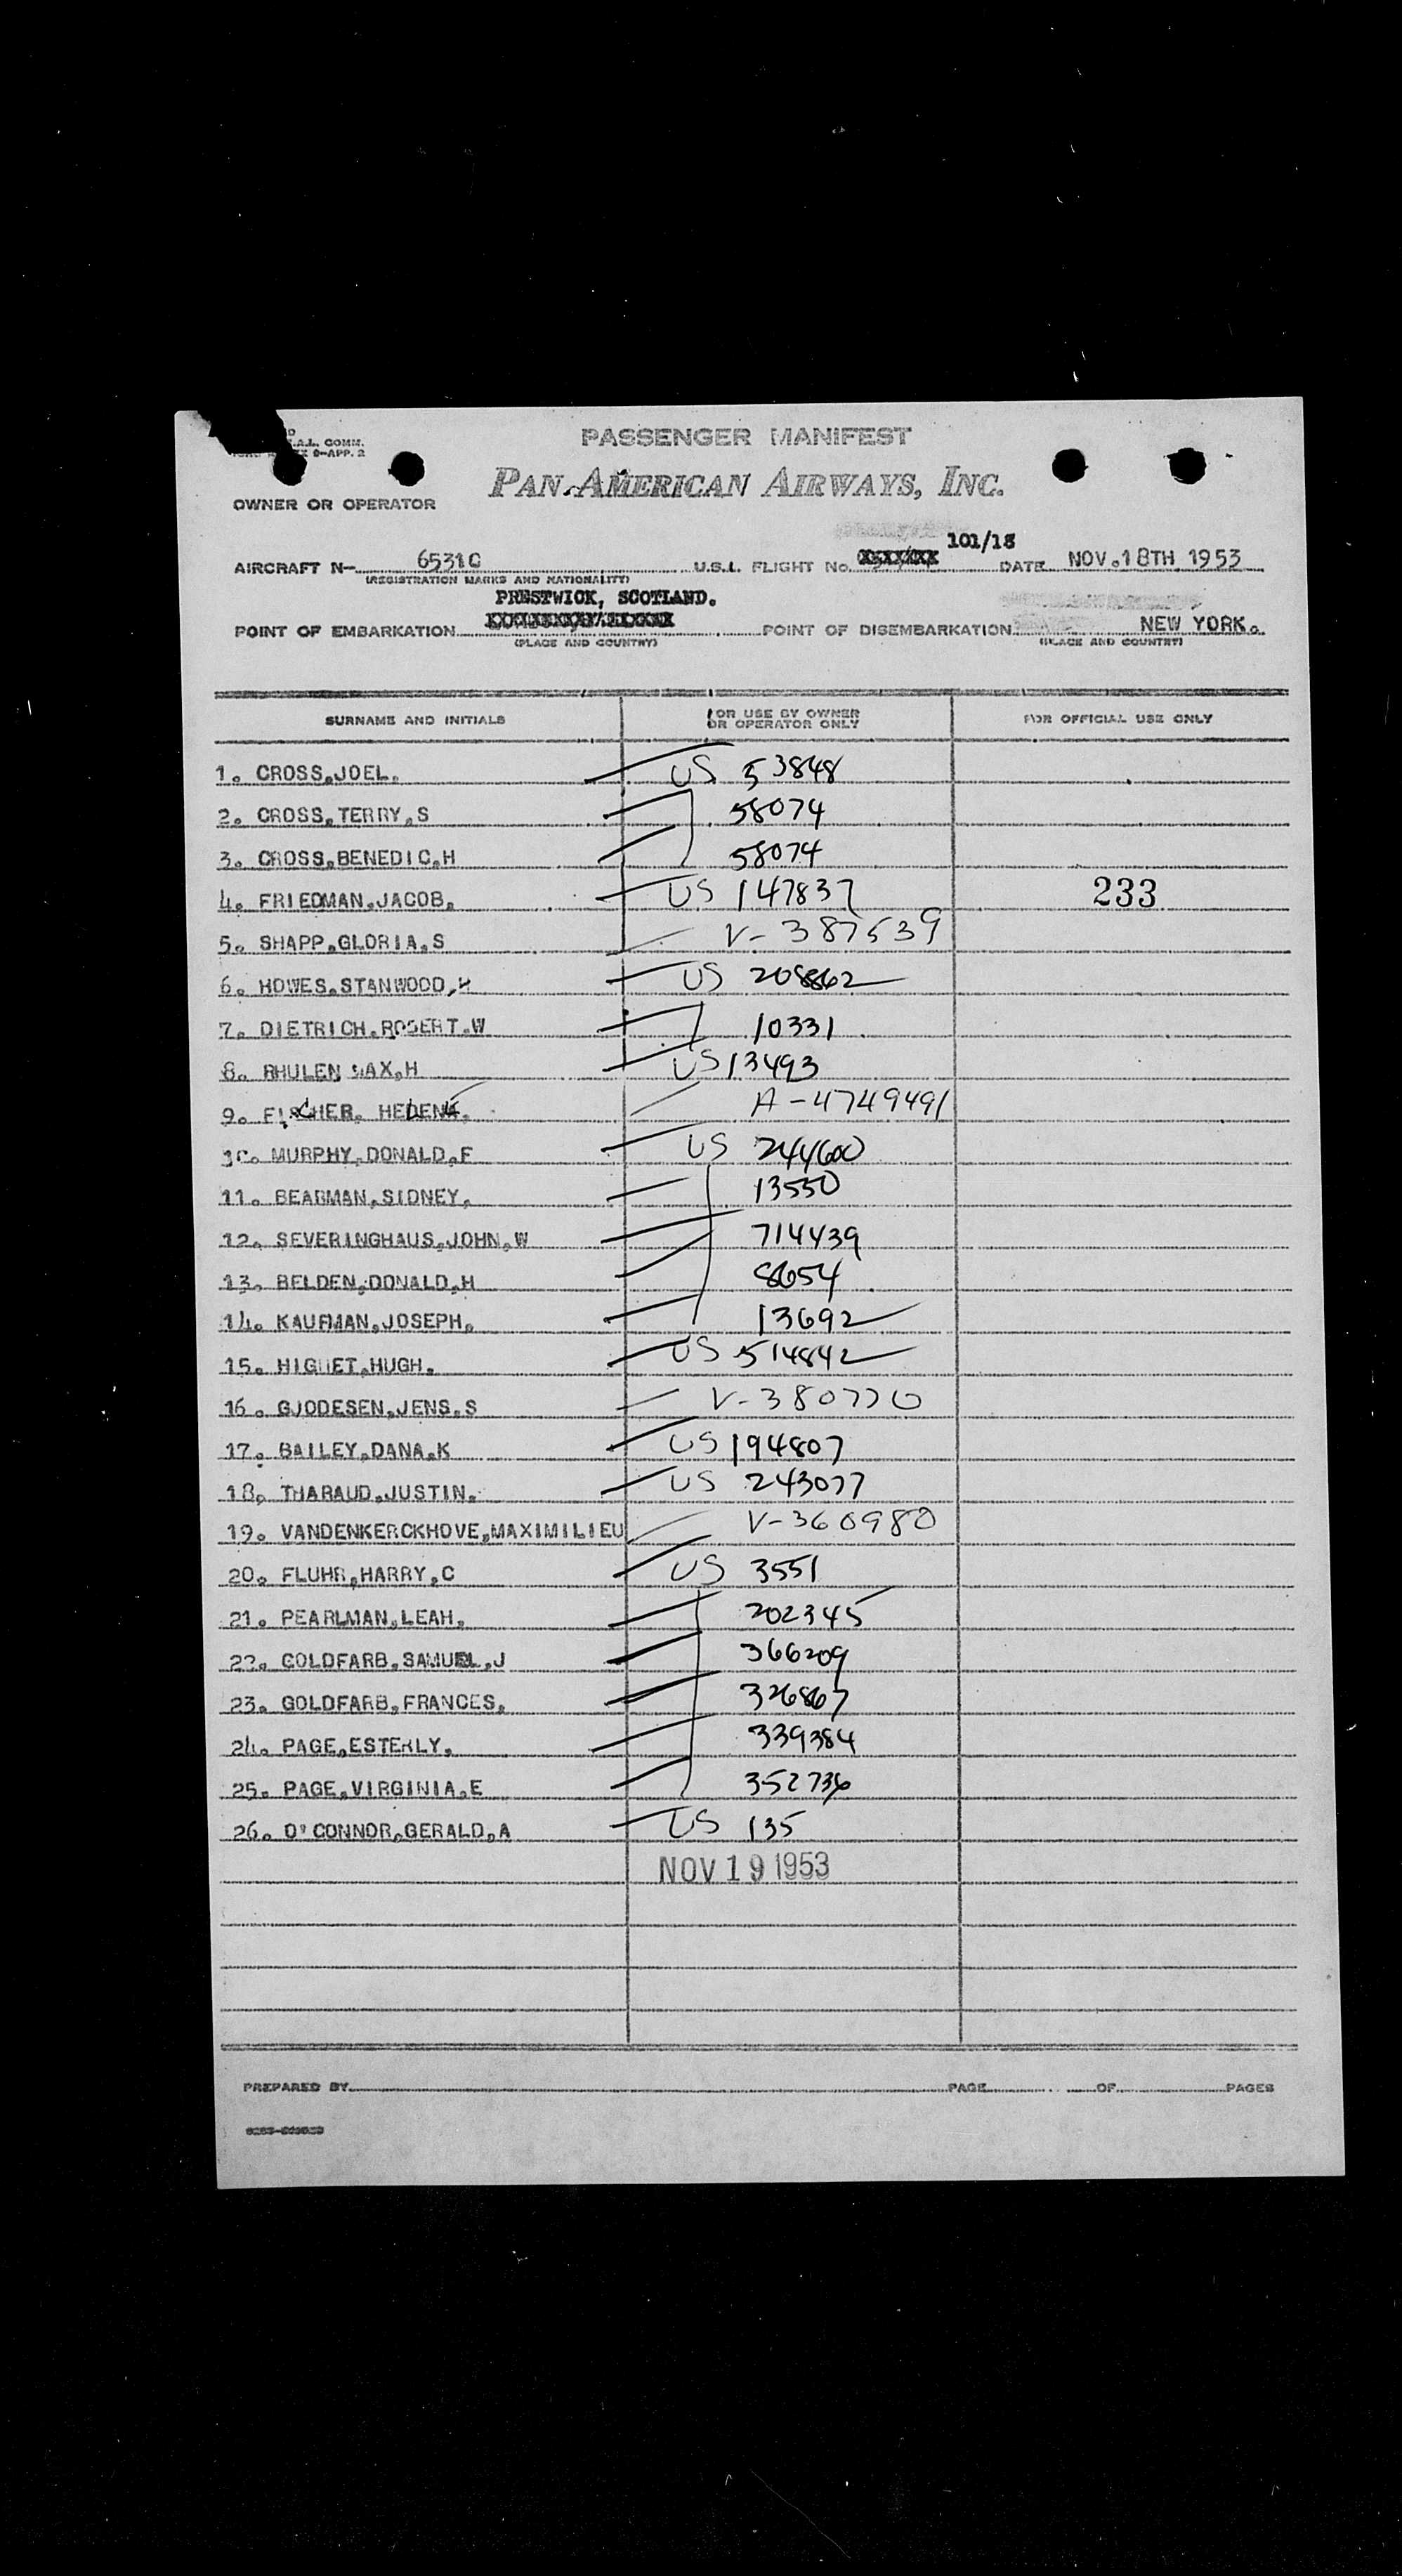 PASSENGER MANIFEST
A.L. COMM.
9-APP. 2
PAN AMERICAN AIRWAYS, INC.
OWNER OR OPERATOR
101/18
AIRCRAFT N- 6531C U.S.I. FLIGHT No. DATE NOV.18TH 1953
(REGISTRATION MARKS AND NATIONALITY)
PRESTWICK, SCOTLAND.
POINT OF EMBARKATION POINT OF DISEMBARKATION NEW YORK.
(PLACE AND COUNTRY) (PLACE AND COUNTRY)
SURNAME AND INITIALS FOR USE BY OWNER OR OPERATOR ONLY FOR OFFICIAL USE ONLY
1. CROSS,JOEL. US 53848
2. CROSS,TERRY,S 58074
3. CROSS,BENEDIC,H 58074
4. FRIEDMAN,JACOB, US 147837 233
5. SHAPP,GLORIA,S V-387539
6. HOWES,STANWOOD,H US 208862
7. DIETRICH,ROBERT,W 10331
8. BHULEN MAX,H US 13493
9. FISCHER, HELENE. A-4749491
10. MURPHY,DONALD,F US 244600
11. BEARMAN,SIDNEY, 13550
12. SEVERINGHAUS,JOHN,W 714439
13. BELDEN,DONALD,H 8654
14. KAUFMAN,JOSEPH, 13692
15. HIGUET,HUGH. US 514842
16. GJODESEN,JENS,S V-380770
17. BAILEY,DANA,K US 194807
18. THARAUD,JUSTIN. US 243077
19. VANDENKERCKHOVE,MAXIMILIEU V-360980
20. FLUHR,HARRY,C US 3551
21. PEARLMAN,LEAH, 202345
22. GOLDFARB,SAMUEL,J 366209
23. GOLDFARB,FRANCES, 326867
24. PAGE,ESTERLY. 339384
25. PAGE,VIRGINIA,E 352736
26. O'CONNOR,GERALD,A US 135
NOV 19 1953
PREPARED BY PAGE OF PAGES